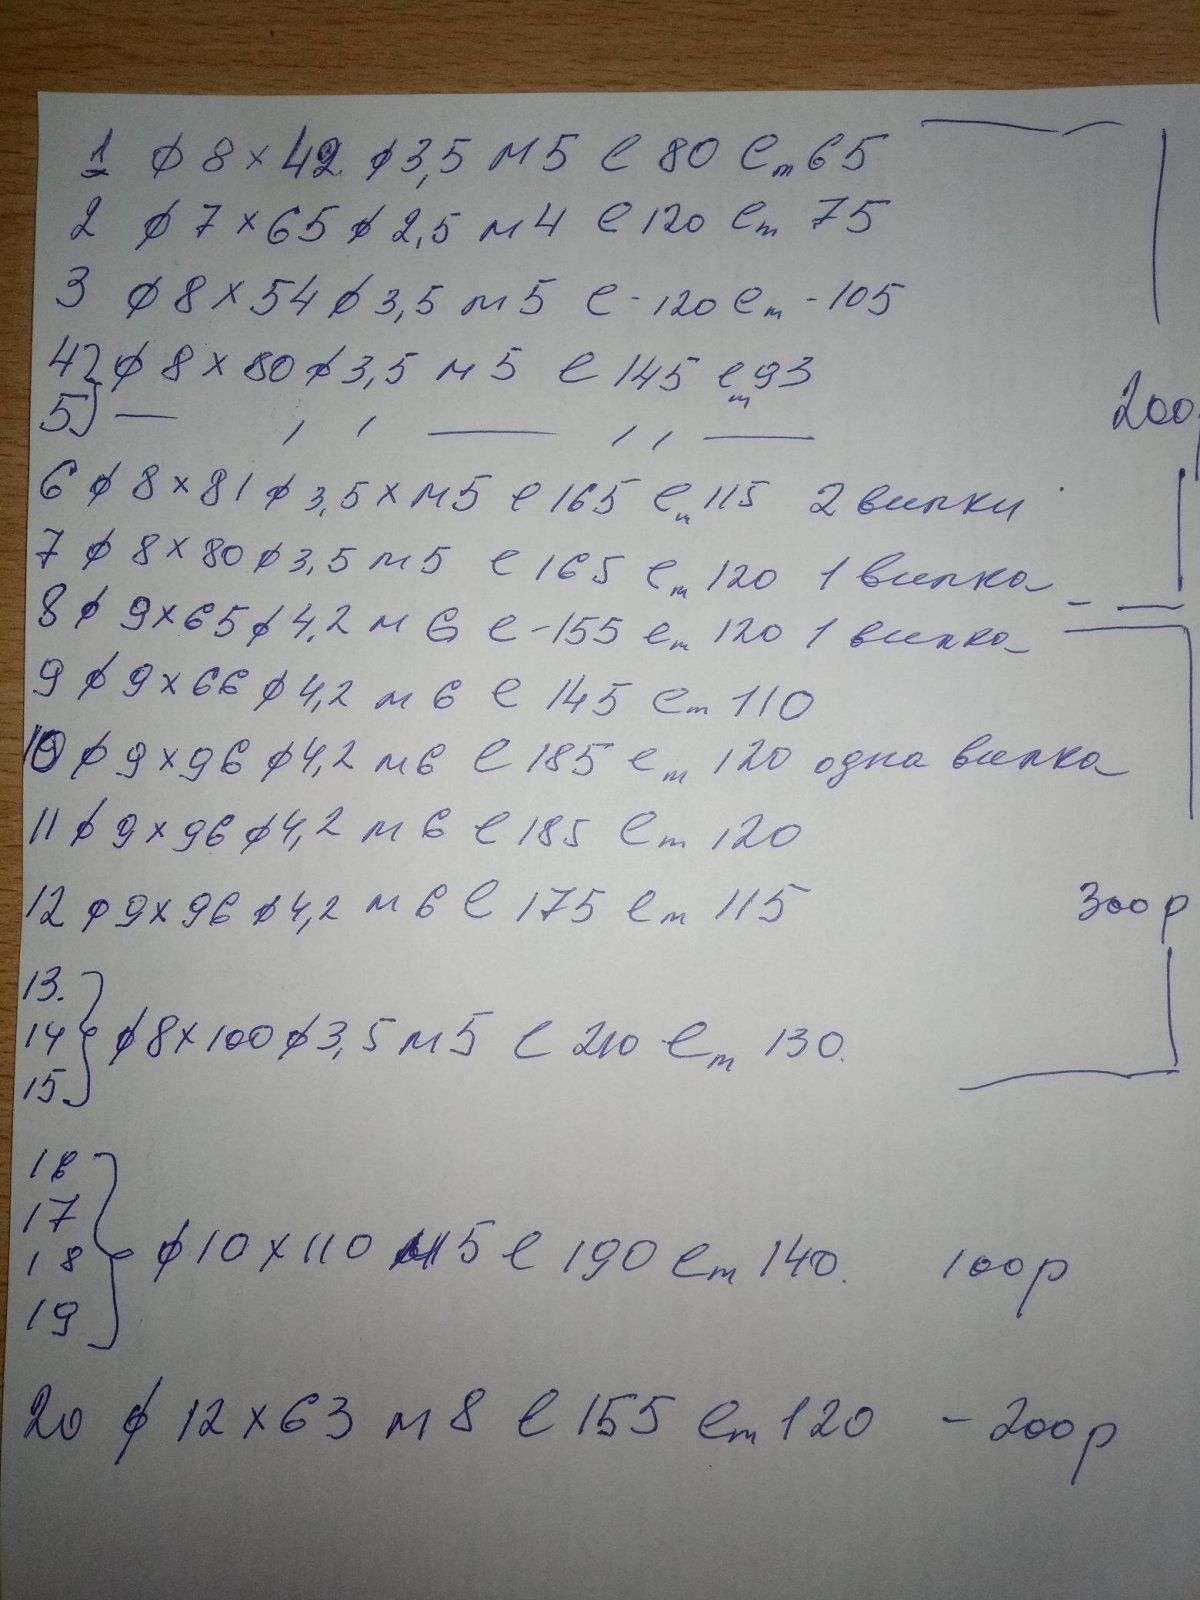 1 ф 8 × 42 ф 3,5 М5 l 80 lm 65
2 ф 7 × 65 ф 2,5 м4 l 120 lm 75
3 ф 8 × 54 ф 3,5 м5 l - 120 lm - 105
4} ф 8 × 80 ф 3,5 м5 l 145 lm 93
200р
5} — ,, — ,, —
6 ф 8 × 81 ф 3,5 × М5 l 165 lm 115 2 вилки
7 ф 8 × 80 ф 3,5 м5 l 165 lm 120 1 вилка
8 ф 9 × 65 ф 4,2 м6 l - 155 lm 120 1 вилка
9 ф 9 × 66 ф 4,2 м6 l 145 lm 110
10 ф 9 × 96 ф 4,2 м6 l 185 lm 120 одна вилка
11 ф 9 × 96 ф 4,2 м6 l 185 lm 120
12 ф 9 × 96 ф 4,2 м6 l 175 lm 115 300р
13.
14 } ф 8 × 100 ф 3,5 м5 l 210 lm 130.
15
16
17
18 } ф 10 × 110 М5 l 190 lm 140. 100р
19
20 ф 12 × 63 м8 l 155 lm 120 - 200р